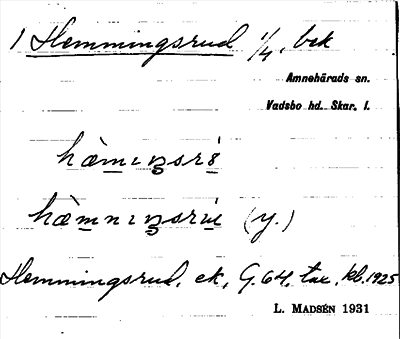 1 Hemmingsrud 1/4, bek
Amnehärads sn.
Vadsbo hd. Skar. l.
(y.)
Hemmingsrud, ek, G.64, tax. kb. 1925
L. MADSÉN 1931